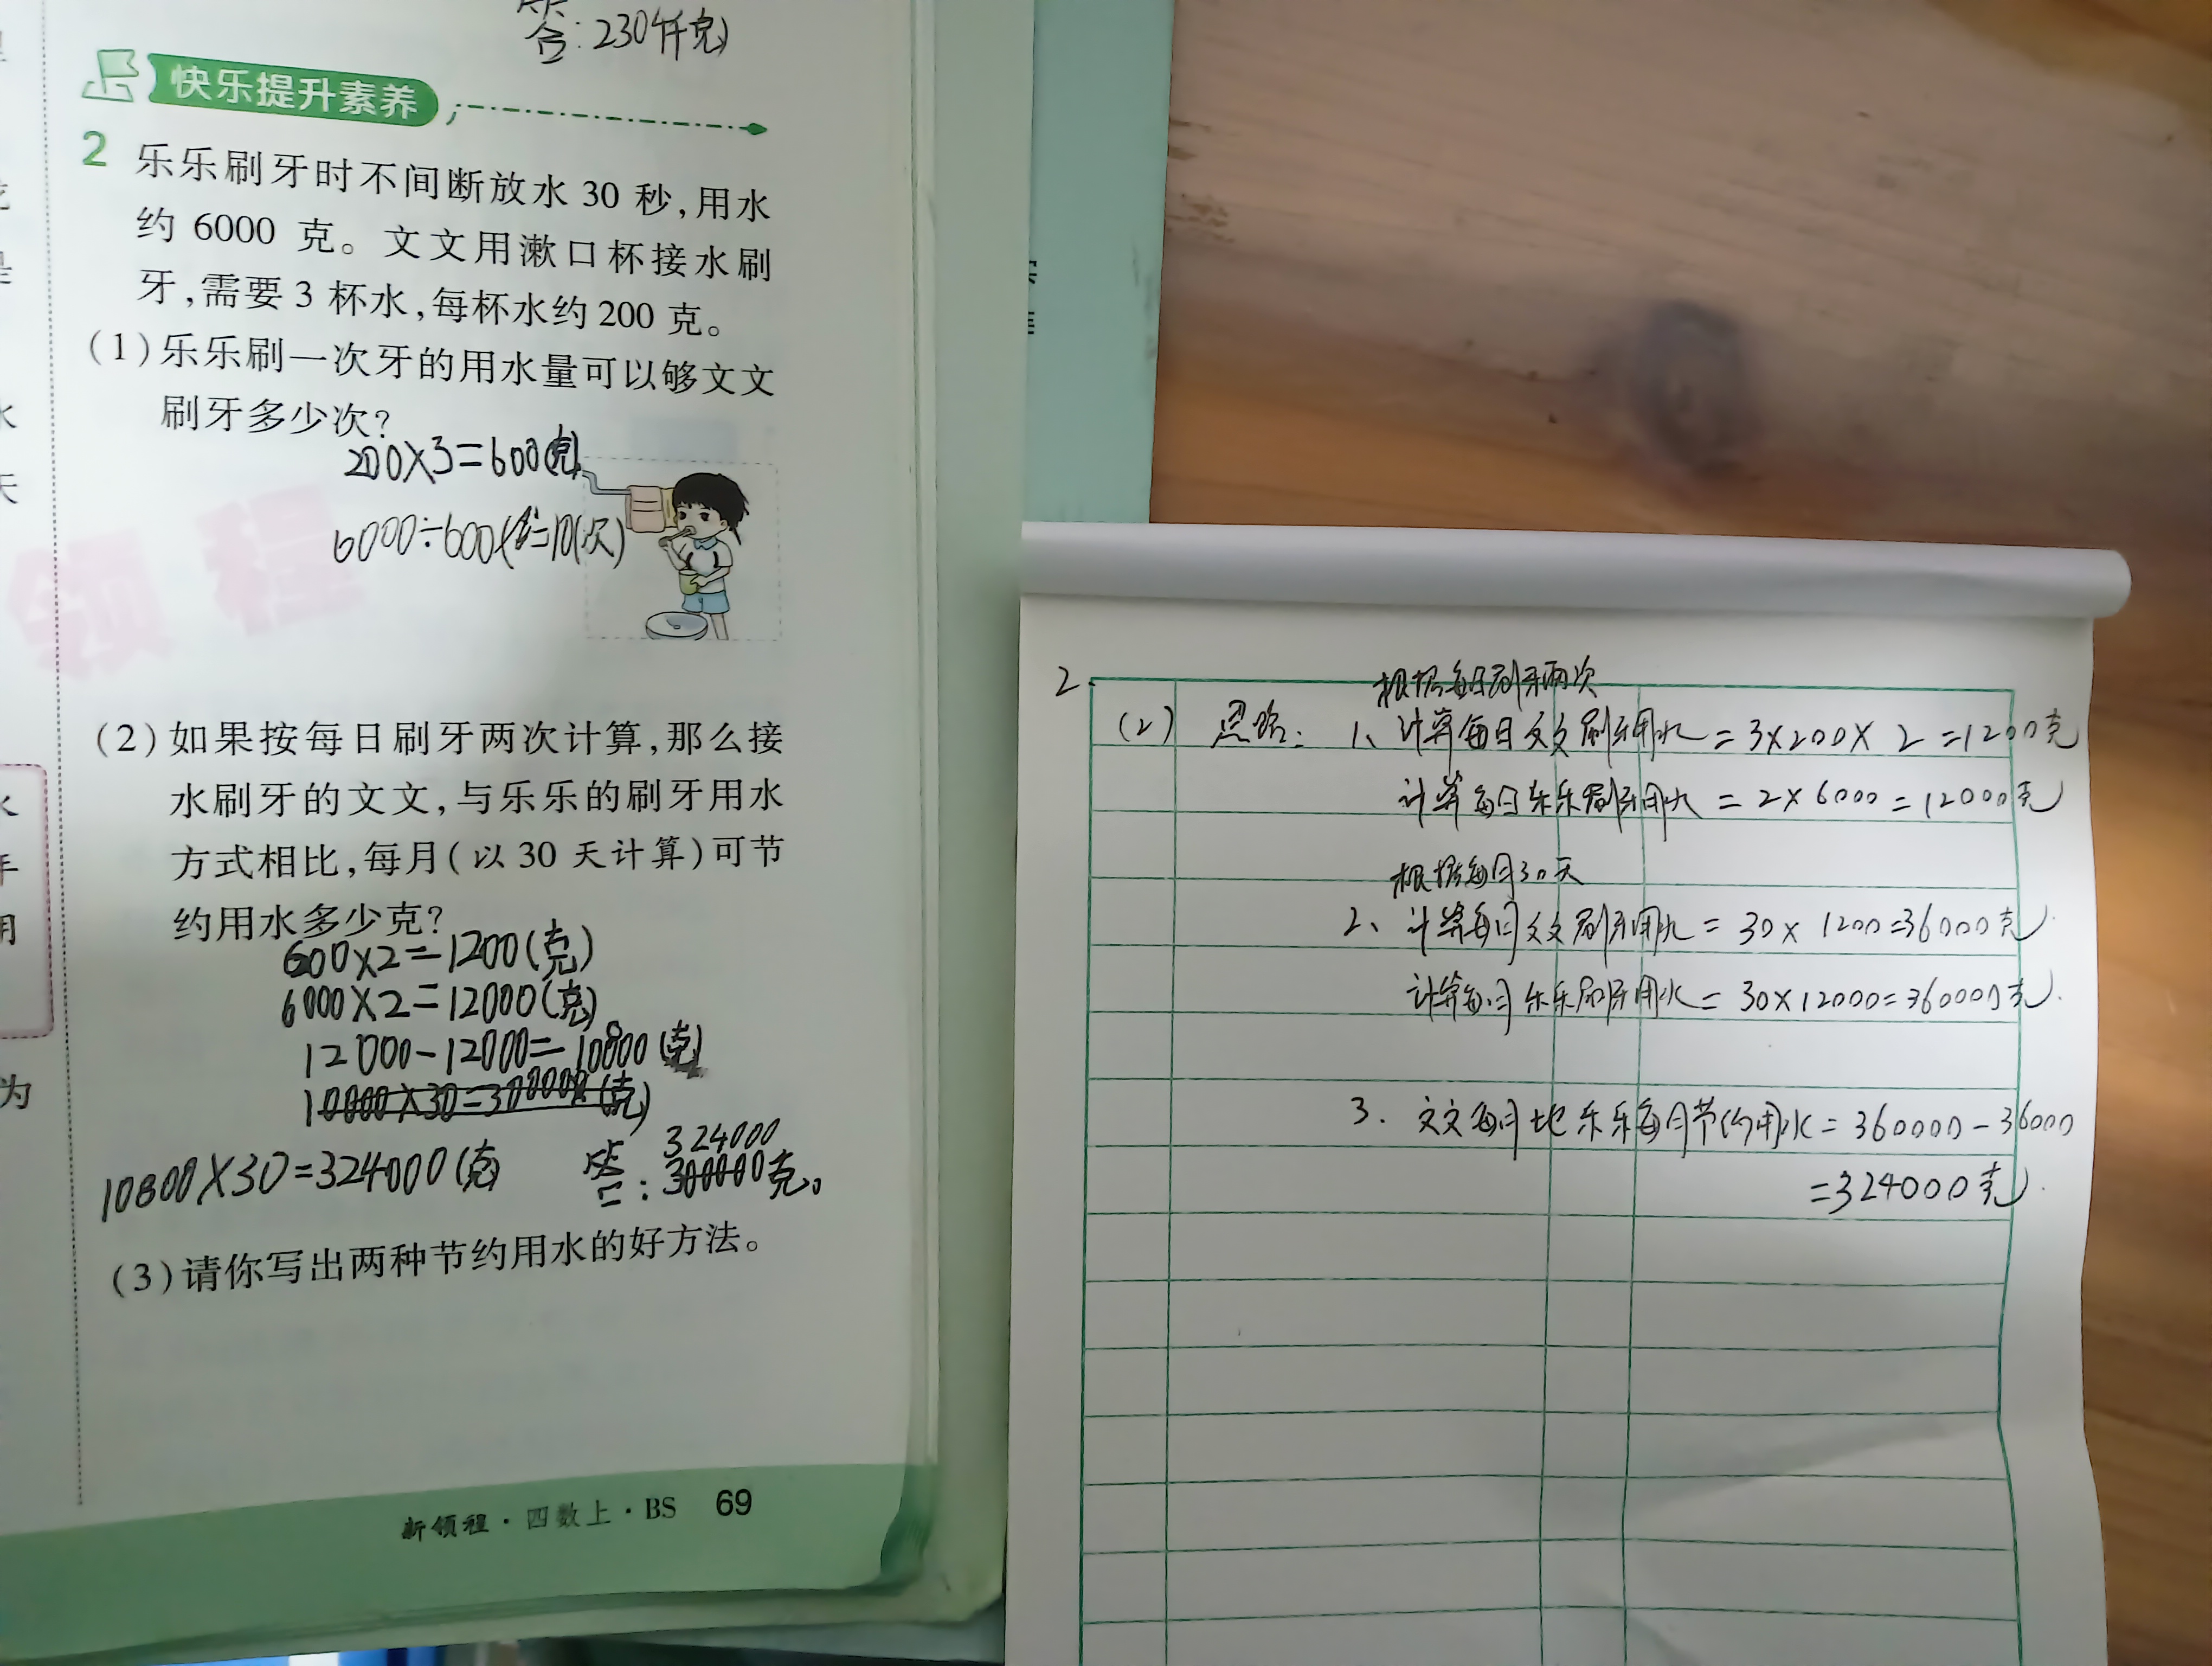 答:230千克
快乐提升素养
2 乐乐刷牙时不间断放水 30 秒,用水
约 6000 克。文文用漱口杯接水刷
牙,需要 3 杯水,每杯水约 200 克。
(1)乐乐刷一次牙的用水量可以够文文
刷牙多少次?
200×3=600(克)
6000÷600=10(次)
领程
(2)如果按每日刷牙两次计算,那么接
水刷牙的文文,与乐乐的刷牙用水
方式相比,每月(以 30 天计算)可节
约用水多少克?
600×2=1200(克)
6000×2=12000(克)
12000-12000=10800(克)
10000×30=300000(克)
10800×30=324000(克)
324000
答:300000克。
(3)请你写出两种节约用水的好方法。
新领程·四数上·BS 69
2.
根据每日刷牙两次
(2) 思路: 1、计算每日文文刷牙用水=3×200×2=1200克
计算每日乐乐刷牙用水=2×6000=12000克
根据每月30天
2、计算每月文文刷牙用水=30×1200=36000克
计算每月乐乐刷牙用水=30×12000=360000克.
3. 文文每月比乐乐每月节约用水=360000-36000
=324000克.